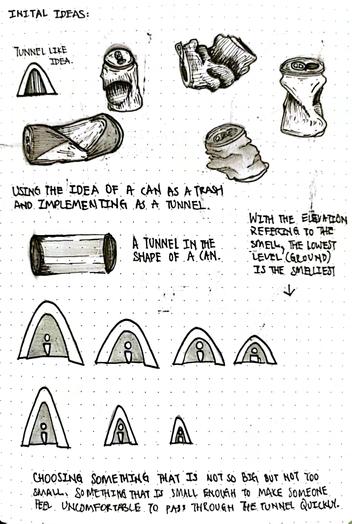 INITAL IDEAS:
TUNNEL LIKE
IDEA.
USING THE IDEA OF A CAN AS A TRASH
AND IMPLEMENTING AS A TUNNEL.
WITH THE ELEVATION
REFERING TO THE
SMELL, THE LOWEST
LEVEL (GROUND)
IS THE SMELIEST
A TUNNEL IN THE
SHAPE OF A CAN.
CHOOSING SOMETHING THAT IS NOT SO BIG BUT NOT TOO
SMALL. SOMETHING THAT IS SMALL ENOUGH TO MAKE SOMEONE
FEEL UNCOMFORTABLE TO PASS THROUGH THE TUNNEL QUICKLY.